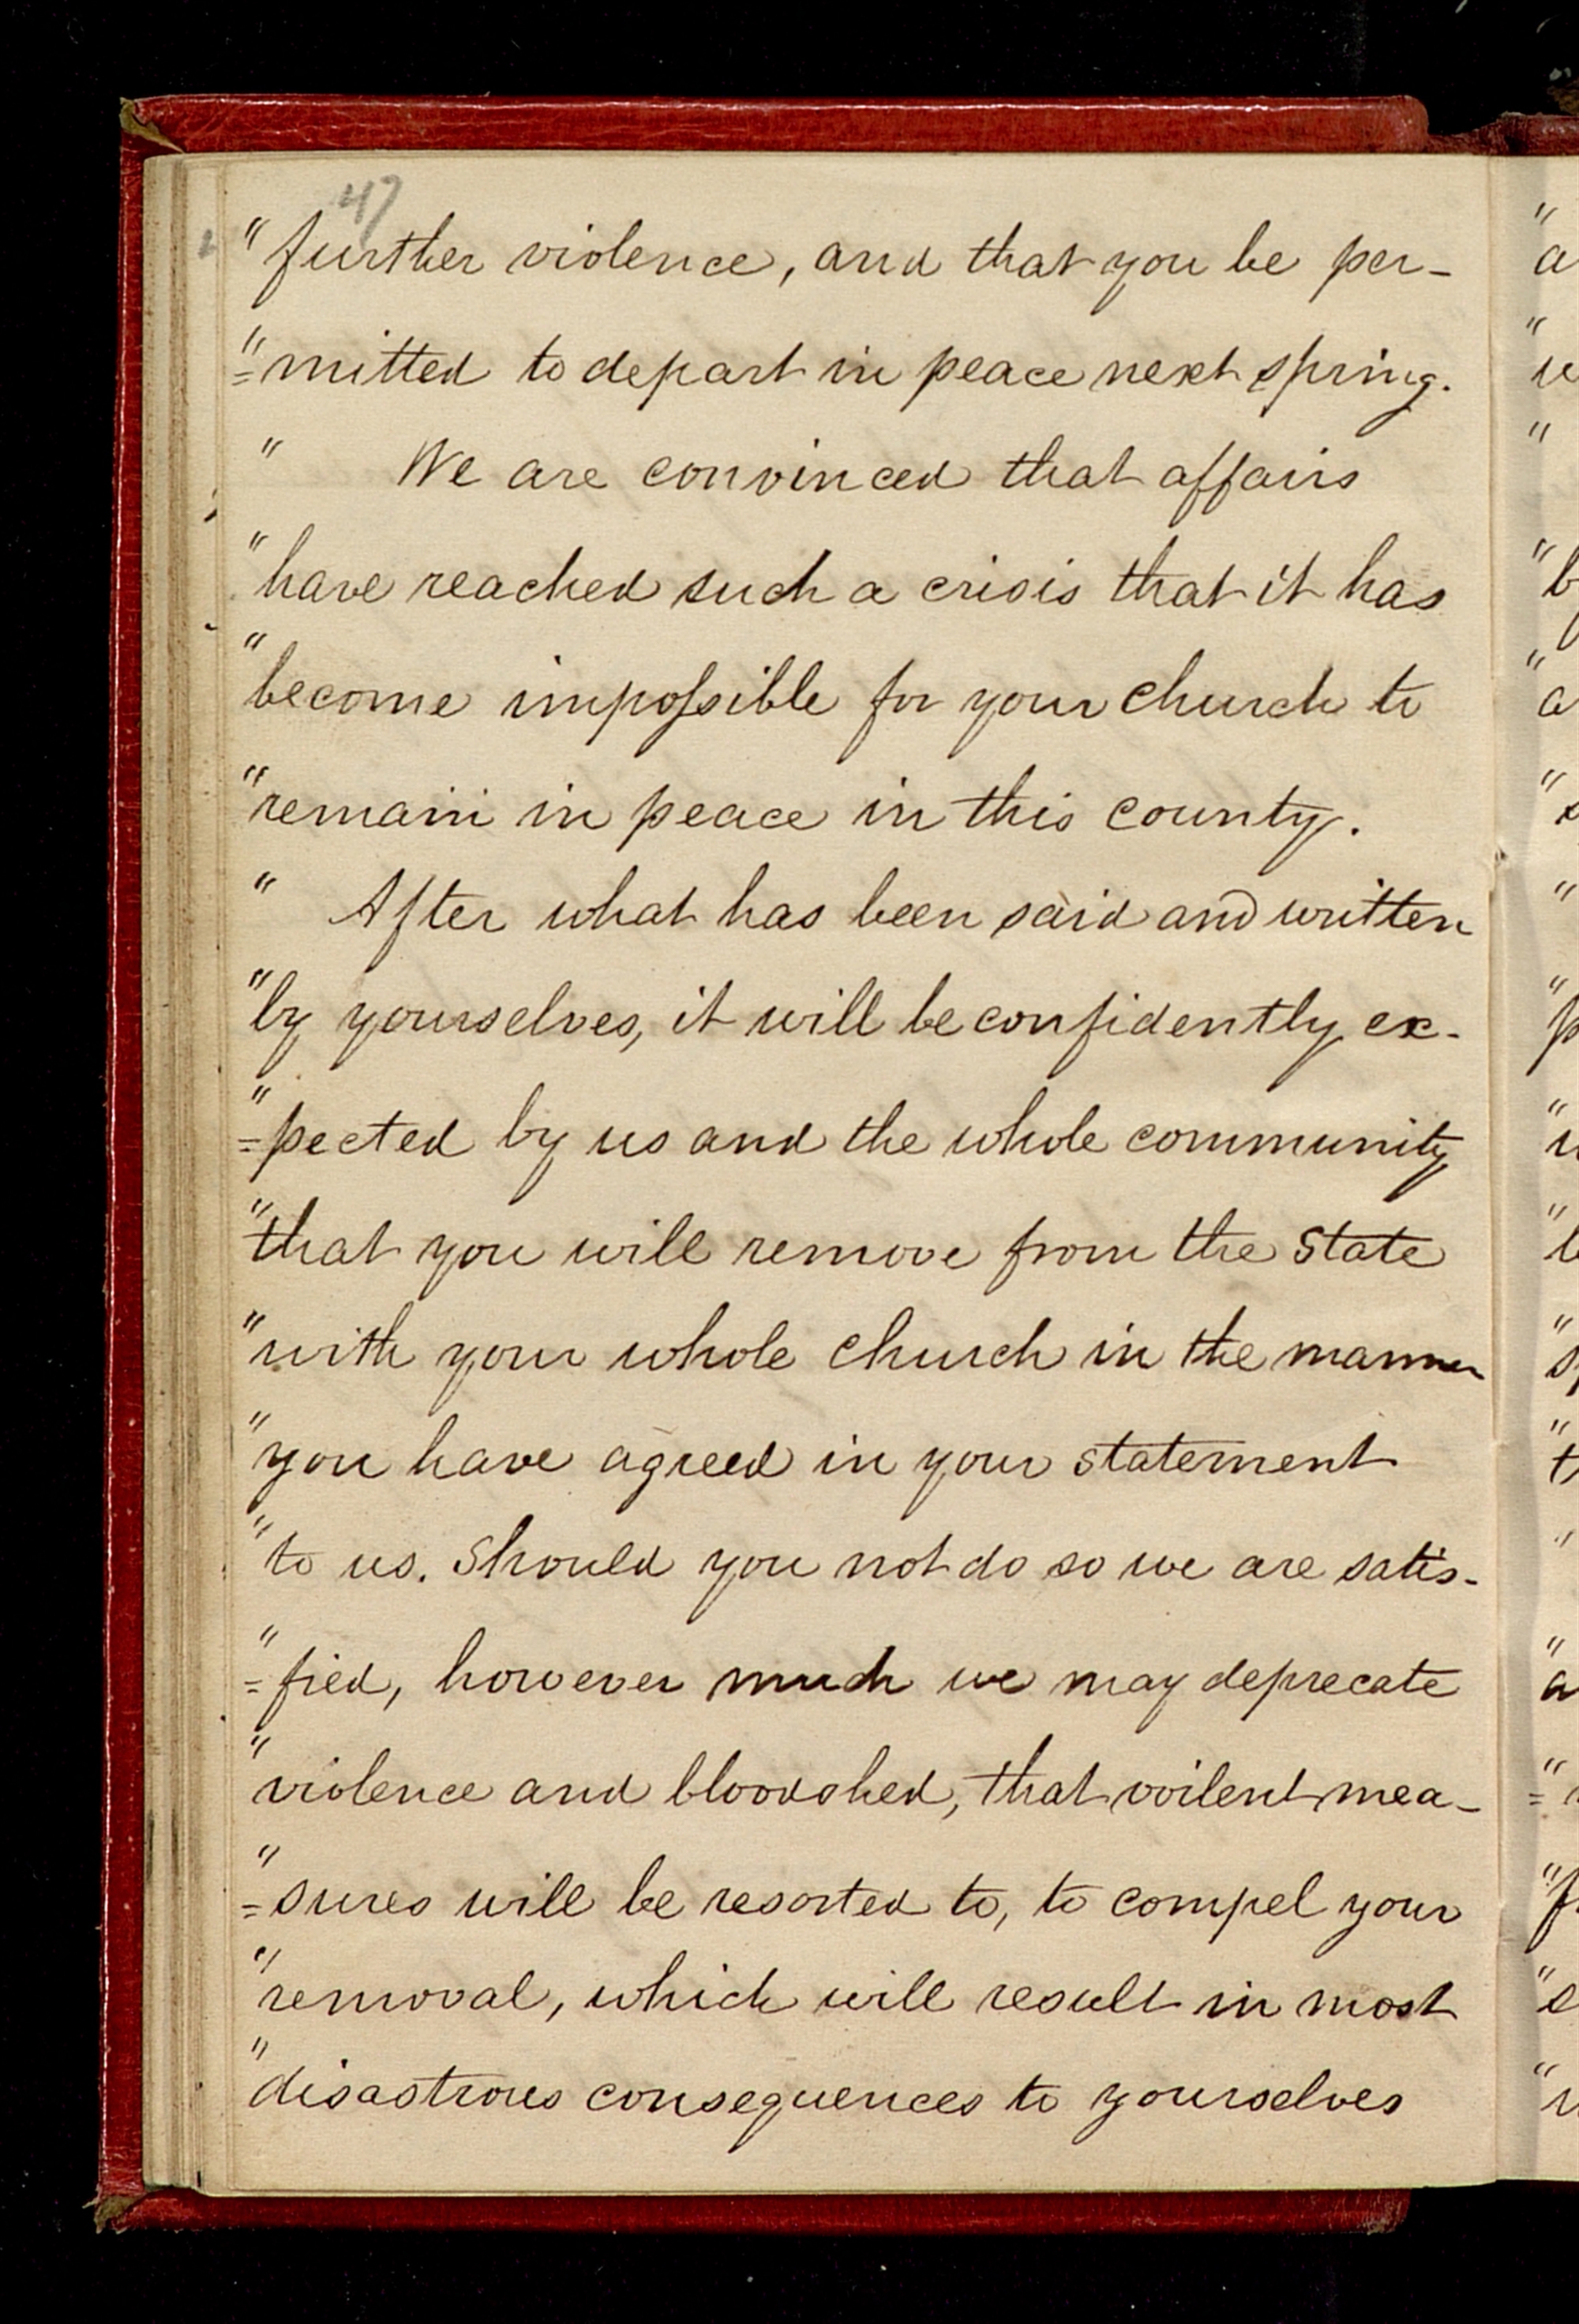 47
"further violence, and that you be per-
"=mitted to depart in peace next spring.
" We are convinced that affairs
"have reached such a crisis that it has
"become impossible for your church to
"remain in peace in this county.
" After what has been said and written
"by yourselves, it will be confidently ex-
"=pected by us and the whole community
"that you will remove from the State
"with your whole church in the manner
"you have agreed in your statement
"to us. Should you not do so we are satis-
"=fied, however much we may deprecate
"violence and bloodshed, that voilent mea-
"=sures will be resorted to, to compel your
"removal, which will result in most
"disastrous consequences to yourselves